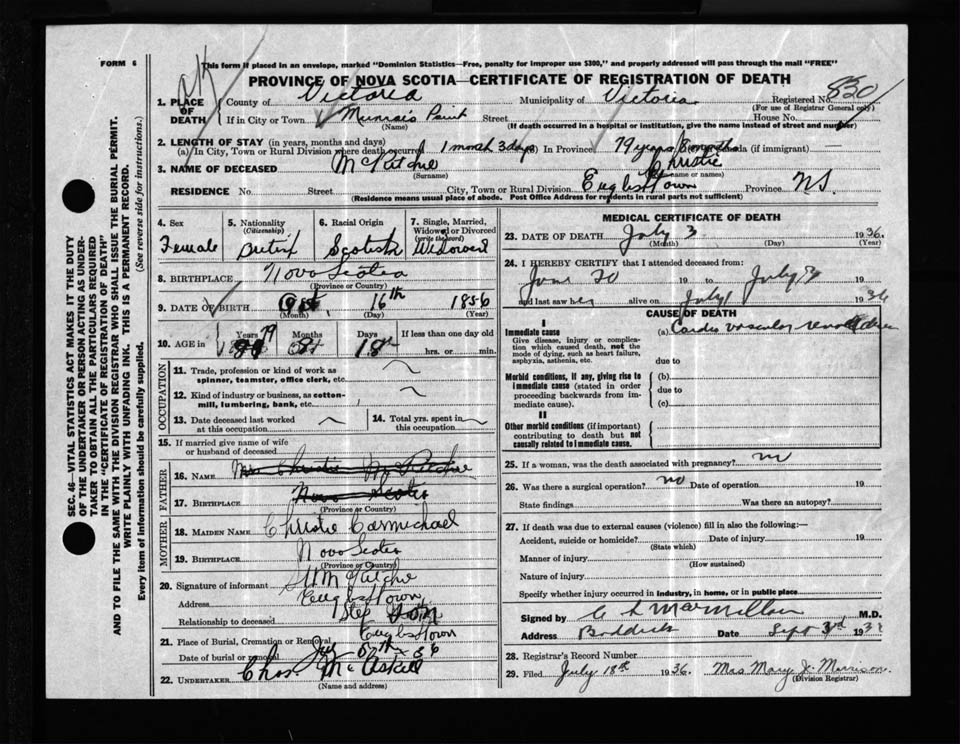 FORM 6
This form if placed in an envelope, marked "Dominion Statistics—Free, penalty for improper use $300," and properly addressed will pass through the mail "FREE"
PROVINCE OF NOVA SCOTIA—CERTIFICATE OF REGISTRATION OF DEATH
1. PLACE OF DEATH
County of Victoria Municipality of Victoria Registered No. 830
(For use of Registrar General only)
If in City or Town Street House No.
(Name) (If death occurred in a hospital or institution, give the name instead of street and number)
2. LENGTH OF STAY (in years, months and days)
(a) In City, Town or Rural Division where death occurred 1 month 3 days (b) In Province 79 years 8 months (if immigrant)
3. NAME OF DECEASED McRitchie Christie
(Surname) (names or names)
RESIDENCE No. Street City, Town or Rural Division Englishtown Province N.S.
(Residence means usual place of abode. Post Office Address for residents in rural parts not sufficient)
4. Sex Female
5. Nationality (Citizenship) British
6. Racial Origin Scotish
7. Single, Married, Widowed or Divorced (write the word) Widowed
8. BIRTHPLACE Nova Scotia
(Province or Country)
9. DATE OF BIRTH Oct, 16th 1856
(Month) (Day) (Year)
10. AGE in Years 79 Months Days 18 If less than one day old
hrs. or min.
OCCUPATION
11. Trade, profession or kind of work as spinner, teamster, office clerk, etc.
12. Kind of industry or business, as cotton-mill, lumbering, bank, etc.
13. Date deceased last worked at this occupation
14. Total yrs. spent in this occupation
15. If married give name of wife or husband of deceased
FATHER
16. NAME Mrs Christie McRitchie
17. BIRTHPLACE Nova Scotia
(Province or Country)
MOTHER
18. MAIDEN NAME Christie Carmichael
19. BIRTHPLACE Nova Scotia
(Province or Country)
20. Signature of informant
Address Englishtown
Relationship to deceased Step Son
21. Place of Burial, Cremation or Removal Englishtown
Date of burial or removal 5th 36
22. UNDERTAKER Chas. McAskill
(Name and address)
MEDICAL CERTIFICATE OF DEATH
23. DATE OF DEATH July 3 1936.
(Month) (Day) (Year)
24. I HEREBY CERTIFY that I attended deceased from:
June 20 19 to July 19
and last saw her alive on July 1 1936
CAUSE OF DEATH
I
Immediate cause (a) Cardio vascular renal disease
Give disease, injury or complication which caused death, not the mode of dying, such as heart failure, asphyxia, asthenia, etc.
due to
Morbid conditions, if any, giving rise to immediate cause (stated in order proceeding backwards from immediate cause).
(b)
due to
(c)
II
Other morbid conditions (if important) contributing to death but not causally related to immediate cause.
25. If a woman, was the death associated with pregnancy? no
26. Was there a surgical operation? no Date of operation 19
State findings Was there an autopsy?
27. If death was due to external causes (violence) fill in also the following:—
Accident, suicide or homicide? Date of injury 19
(State which)
Manner of injury
(How sustained)
Nature of injury
Specify whether injury occurred in industry, in home, or in public place
Signed by C L MacMillan M.D.
Address Baddeck Date Sept 3rd 193
28. Registrar's Record Number
29. Filed July 18th 1936. Mrs Mary J. Morrison.
(Division Registrar)
SEC. 46—VITAL STATISTICS ACT MAKES IT THE DUTY
OF THE UNDERTAKER OR PERSON ACTING AS UNDERTAKER TO OBTAIN ALL THE PARTICULARS REQUIRED
IN THE "CERTIFICATE OF REGISTRATION OF DEATH"
AND TO FILE THE SAME WITH THE DIVISION REGISTRAR WHO SHALL ISSUE THE BURIAL PERMIT.
WRITE PLAINLY WITH UNFADING INK. THIS IS A PERMANENT RECORD.
Every item of information should be carefully supplied. (See reverse side for instructions.)